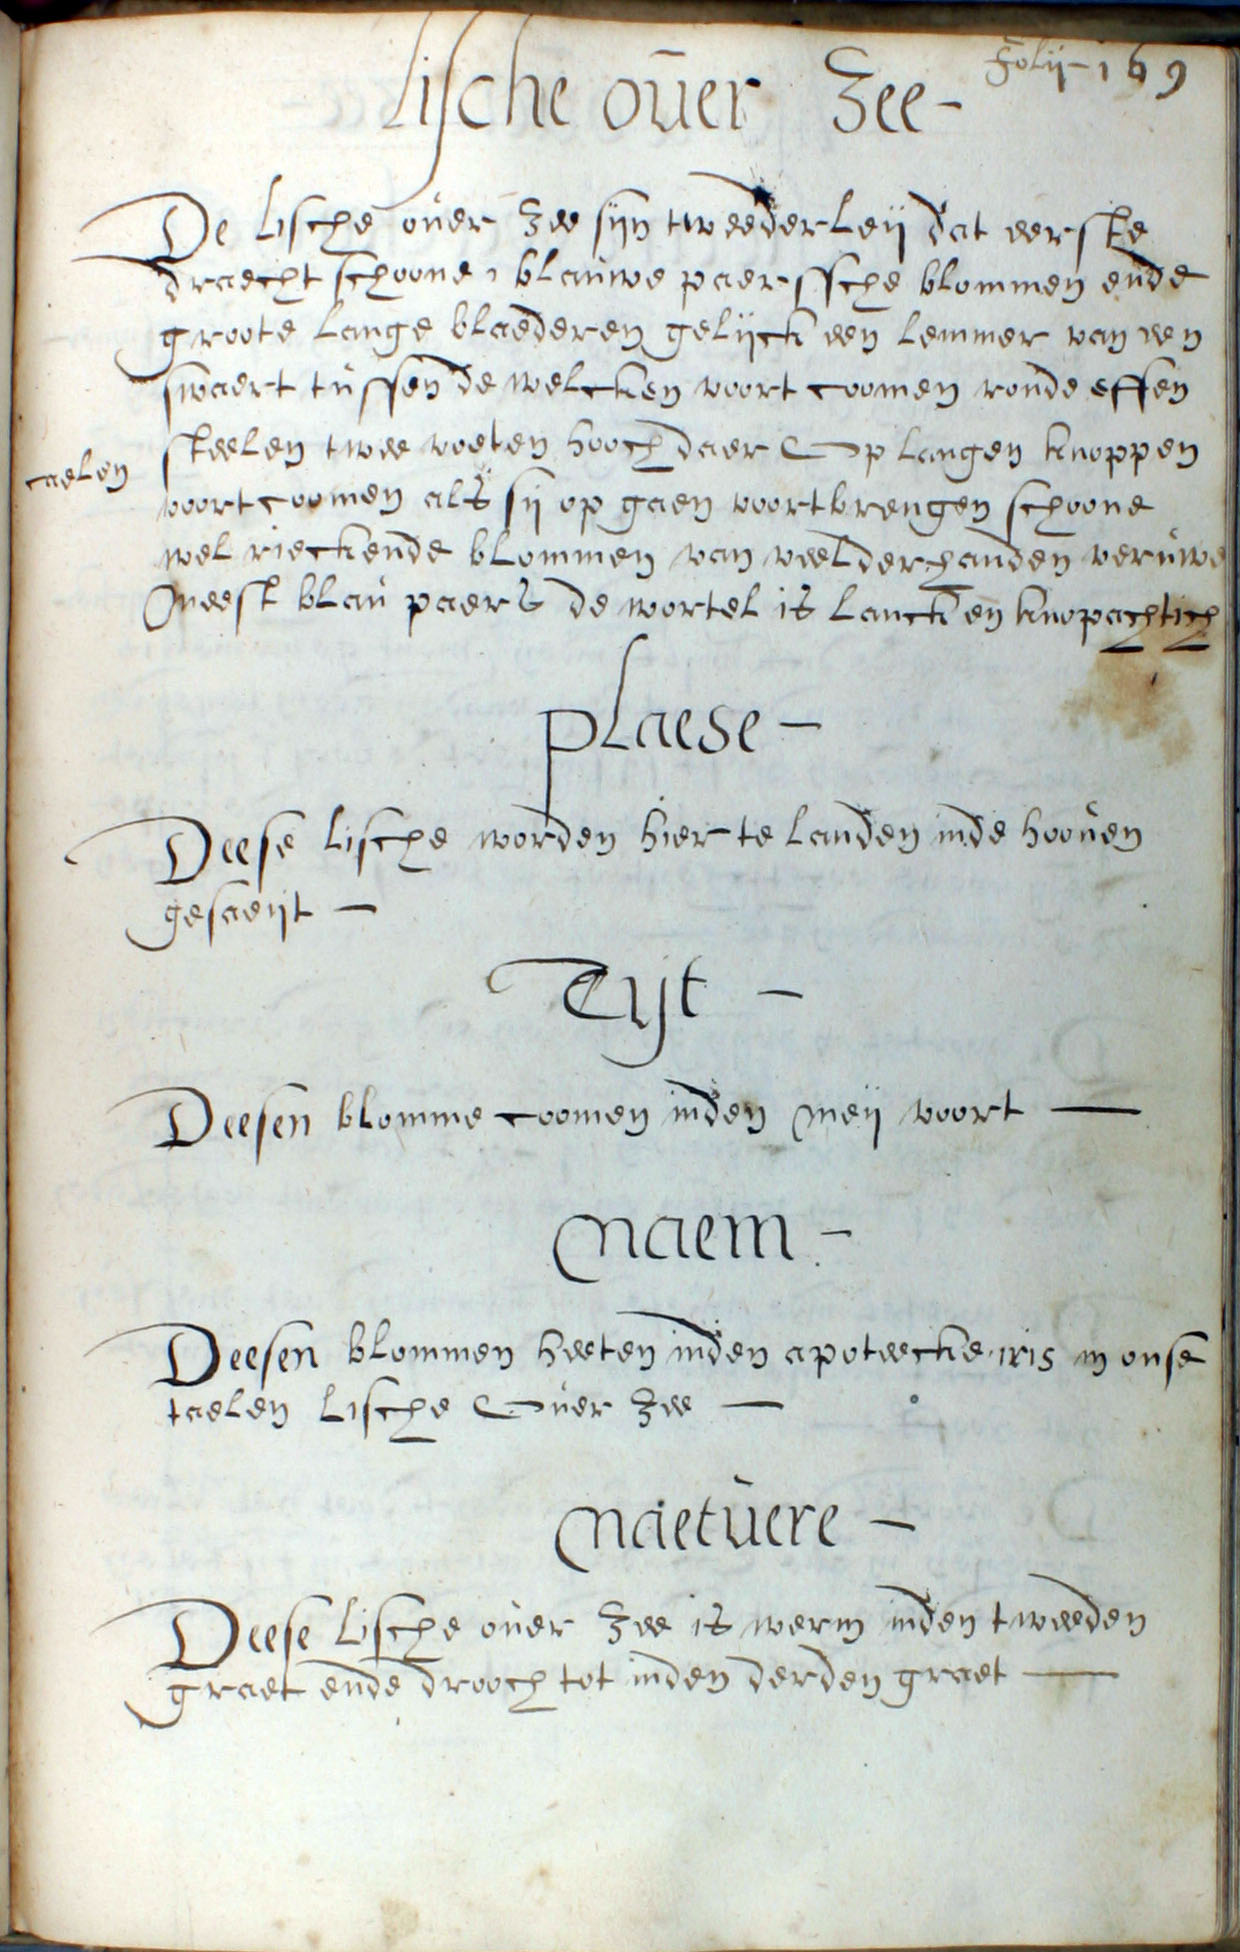 Folij 169
Lische oũer Zee -
De Lische oũer Zee sijn tweederleij dat eerste
draecht schoone blaũwe paerssche blommen ende
groote lange blaederen gelijck een lemmer van een
swaert tũssen de welcken voort coomen ronde effen
steelen twee voeten hooch daer Op langen knoppen
caelen
voortcoomen als sij op gaen voortbrengen schoone
wel rieckende blommen van veelderhanden verũwe
Meest blaũ paers de wortel is lanck en knopachtich
plaese -
Deese lische worden hier te landen inde hooũen
gesaeijt -
Tijt -
Deesen blomme coomen inden Meij voort -
Naem -
Deesen blommen heeten inden apoteecke iris in onse
taelen lische Oũer Zee -
Naetũere -
Deese lische oũer Zee is werm inden tweeden
graet ende drooch tot inden derden graet -